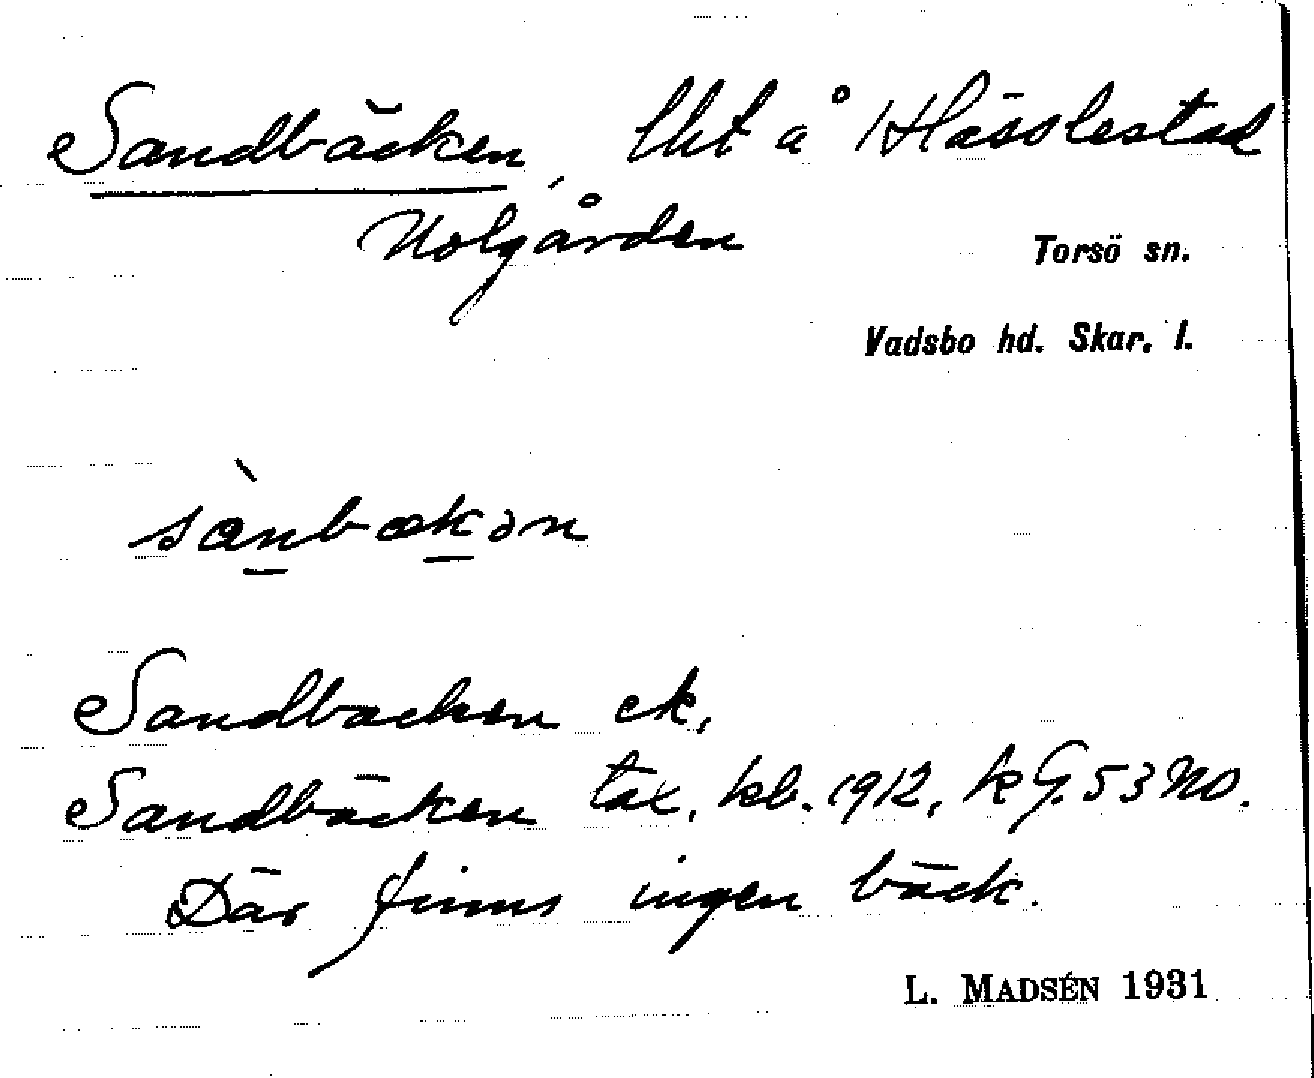 Sandbäcken, lht å 1 Hässlestad
Nolgården
Torsö sn.
Vadsbo hd. Skar. l.
sànbækən
Sandbacken ek,
Sandbäcken tax. kb. 1912, k G. 53 NO.
Där finns ingen bäck.
L. MADSÉN 1931